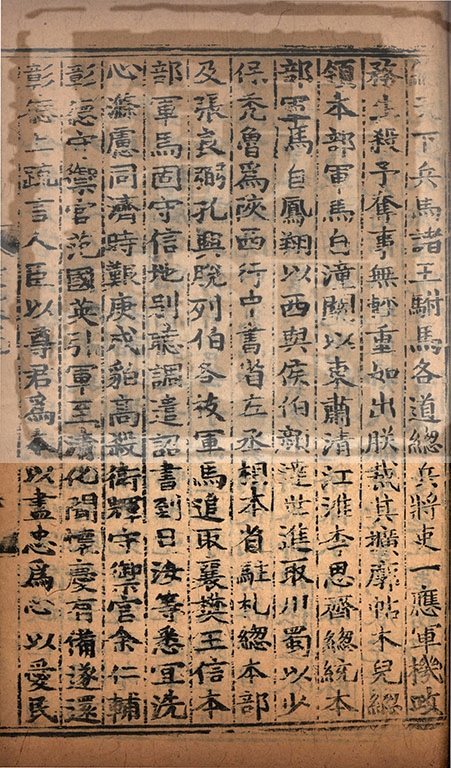 總天下兵馬諸王駙馬各道總兵將吏一應軍機政
務生殺予奪事無輕重如出朕裁其擴廓帖木兒總
領本部軍馬自潼關以東肅清江淮李思齊總統本
部軍馬自鳳翔以西與侯伯顏達世進取川蜀以少
保禿魯爲陝西行中書省左丞相本省駐札總本部
及張良弼孔興脫列伯各枝軍馬追取襄樊王信本
部軍馬固守信地別聽調遣詔書到日汝等悉宜洗
心滌慮同濟時艱庚戌貊高殺衛輝守禦官余仁輔
彰德守禦官范國英引軍至清化聞懷慶有備遂還
彰德上疏言人臣以尊君爲本以盡忠爲心以愛民